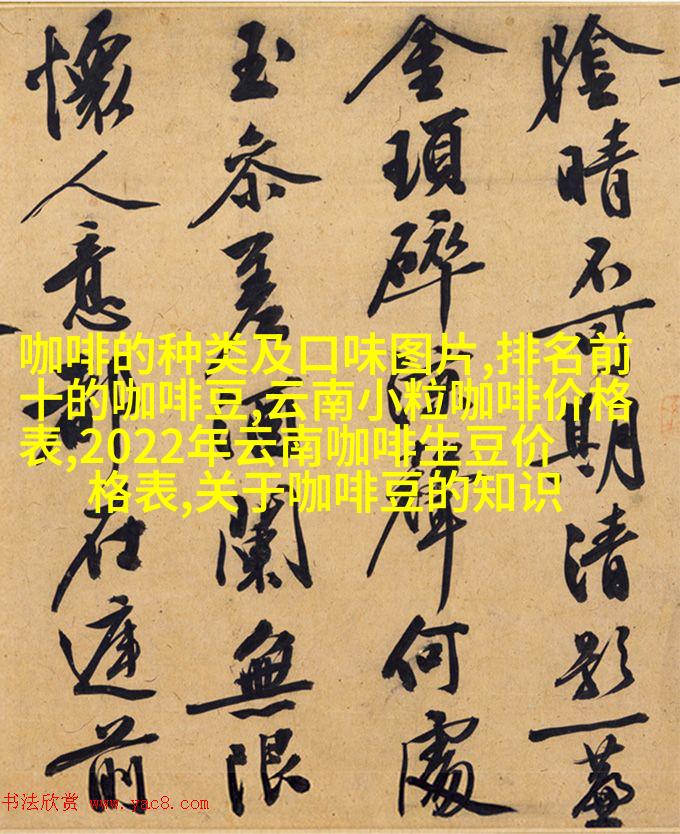 陰晴不可期清影一
金瑣碎聲何處
玉參差闌無限
懷人意都在前
咖啡的种类及口味图片,排名前
十的咖啡豆,云南小粒咖啡价格
表,2022年云南咖啡生豆价
格表,关于咖啡豆的知识
书法欣赏 www.yac8.com